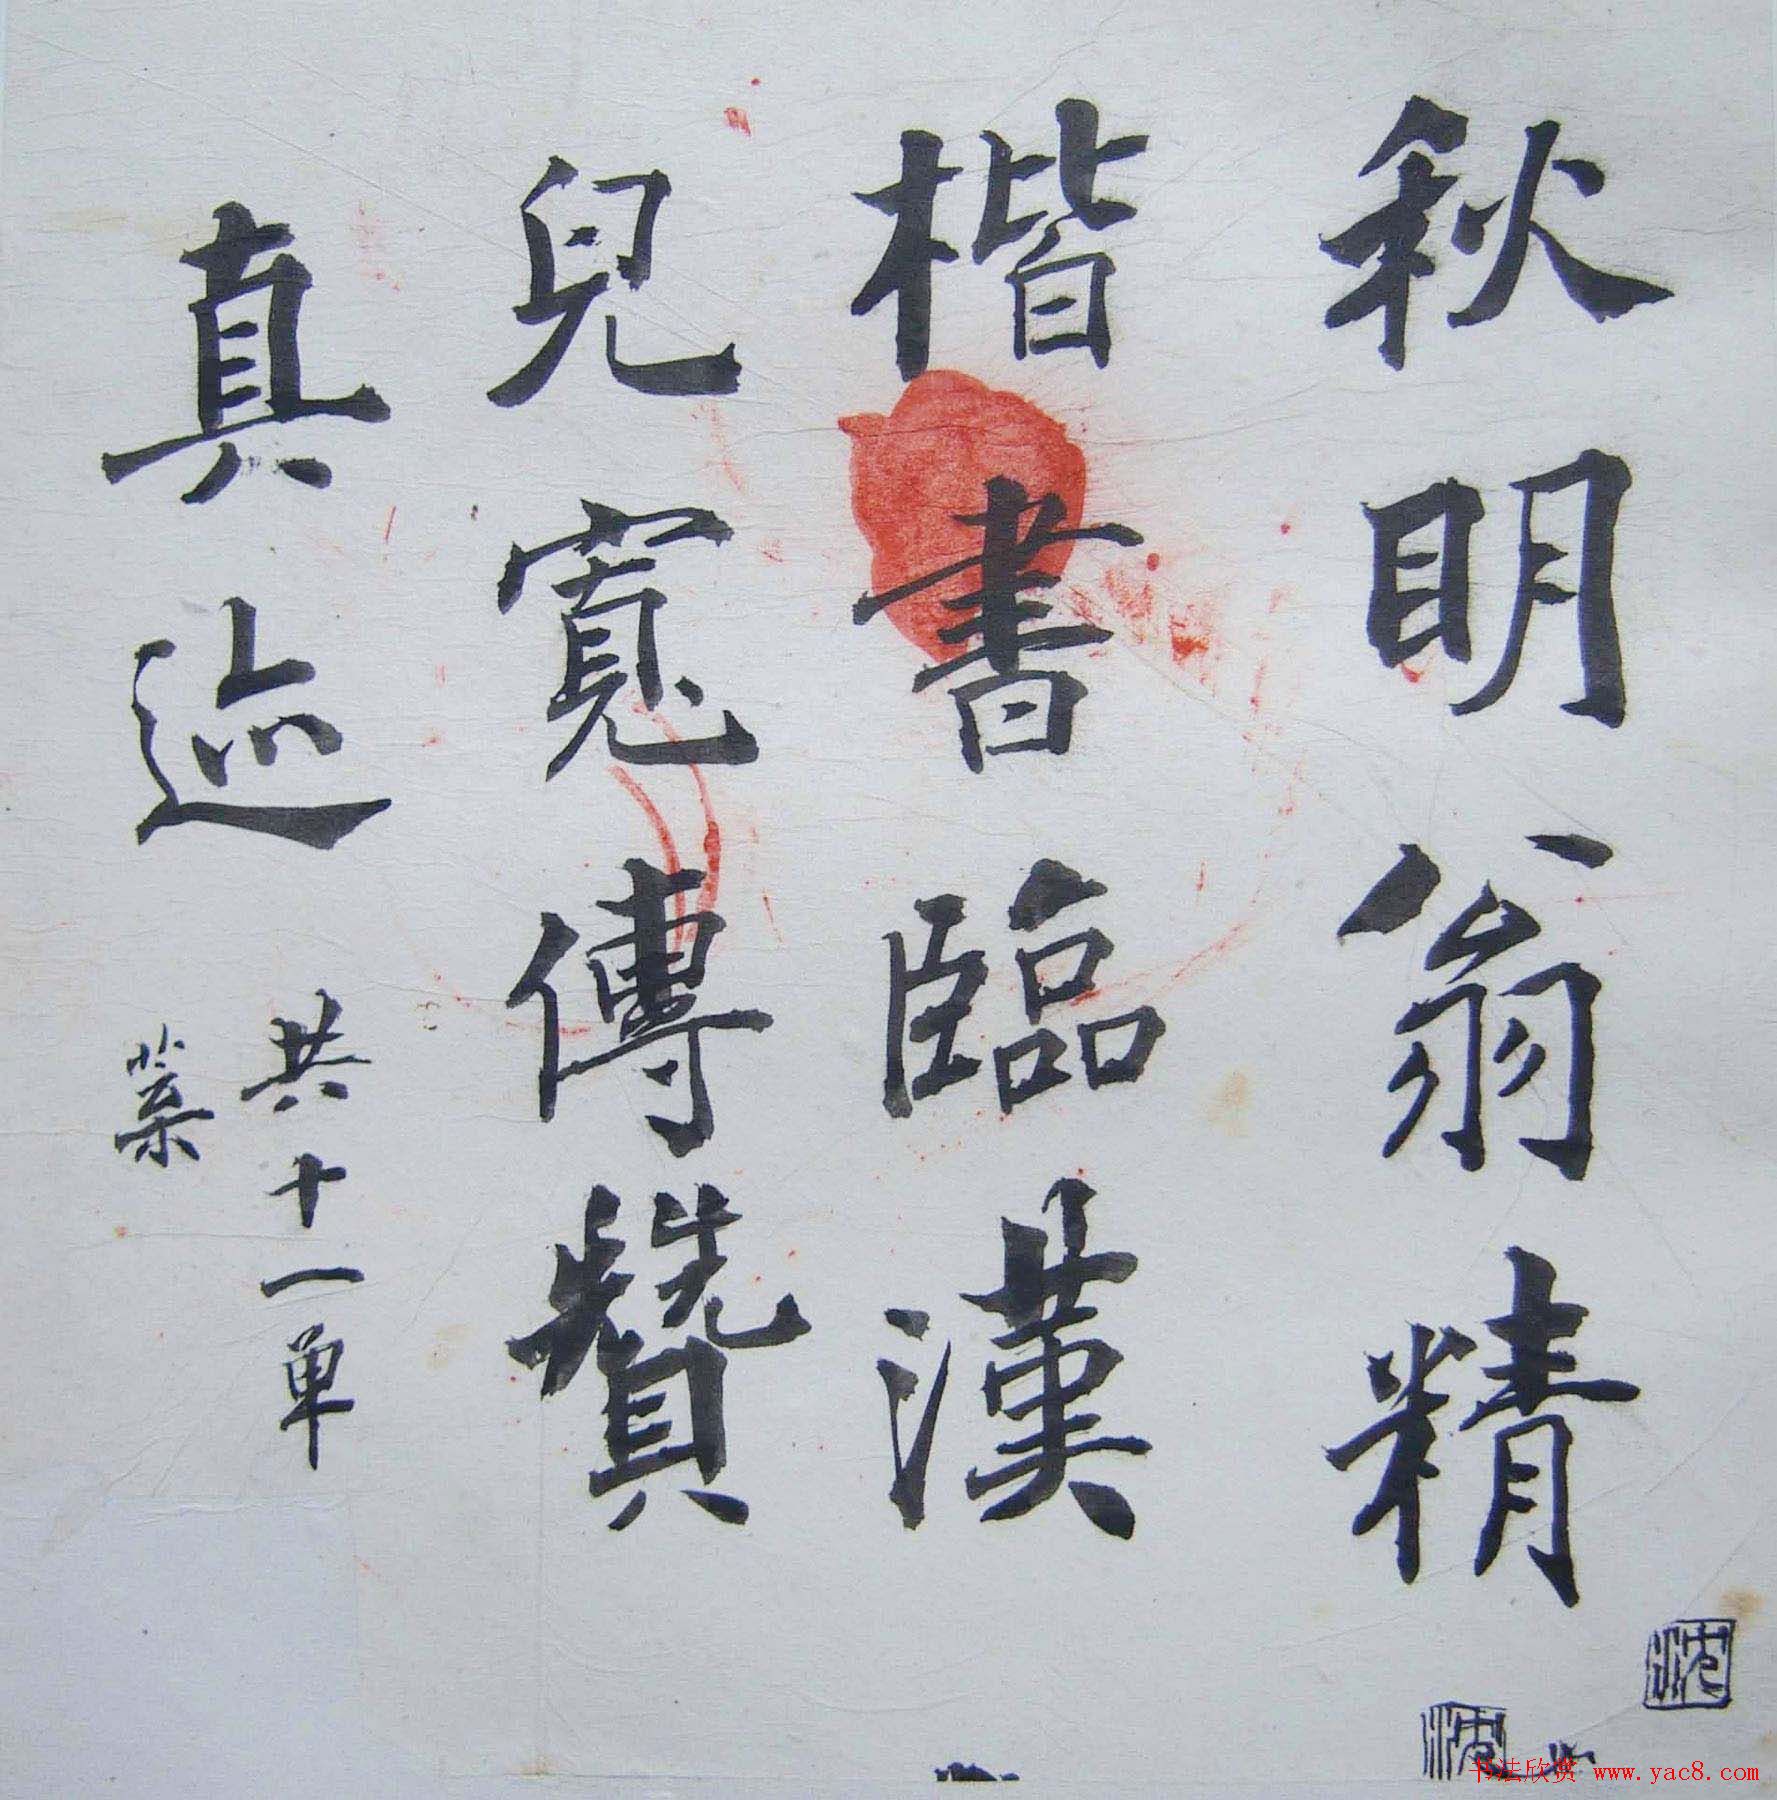 秋明翁精
楷書臨漢
兒寬傳贊
真迹
共十一单
葉
沈
沈
书法欣赏 www.yac8.com